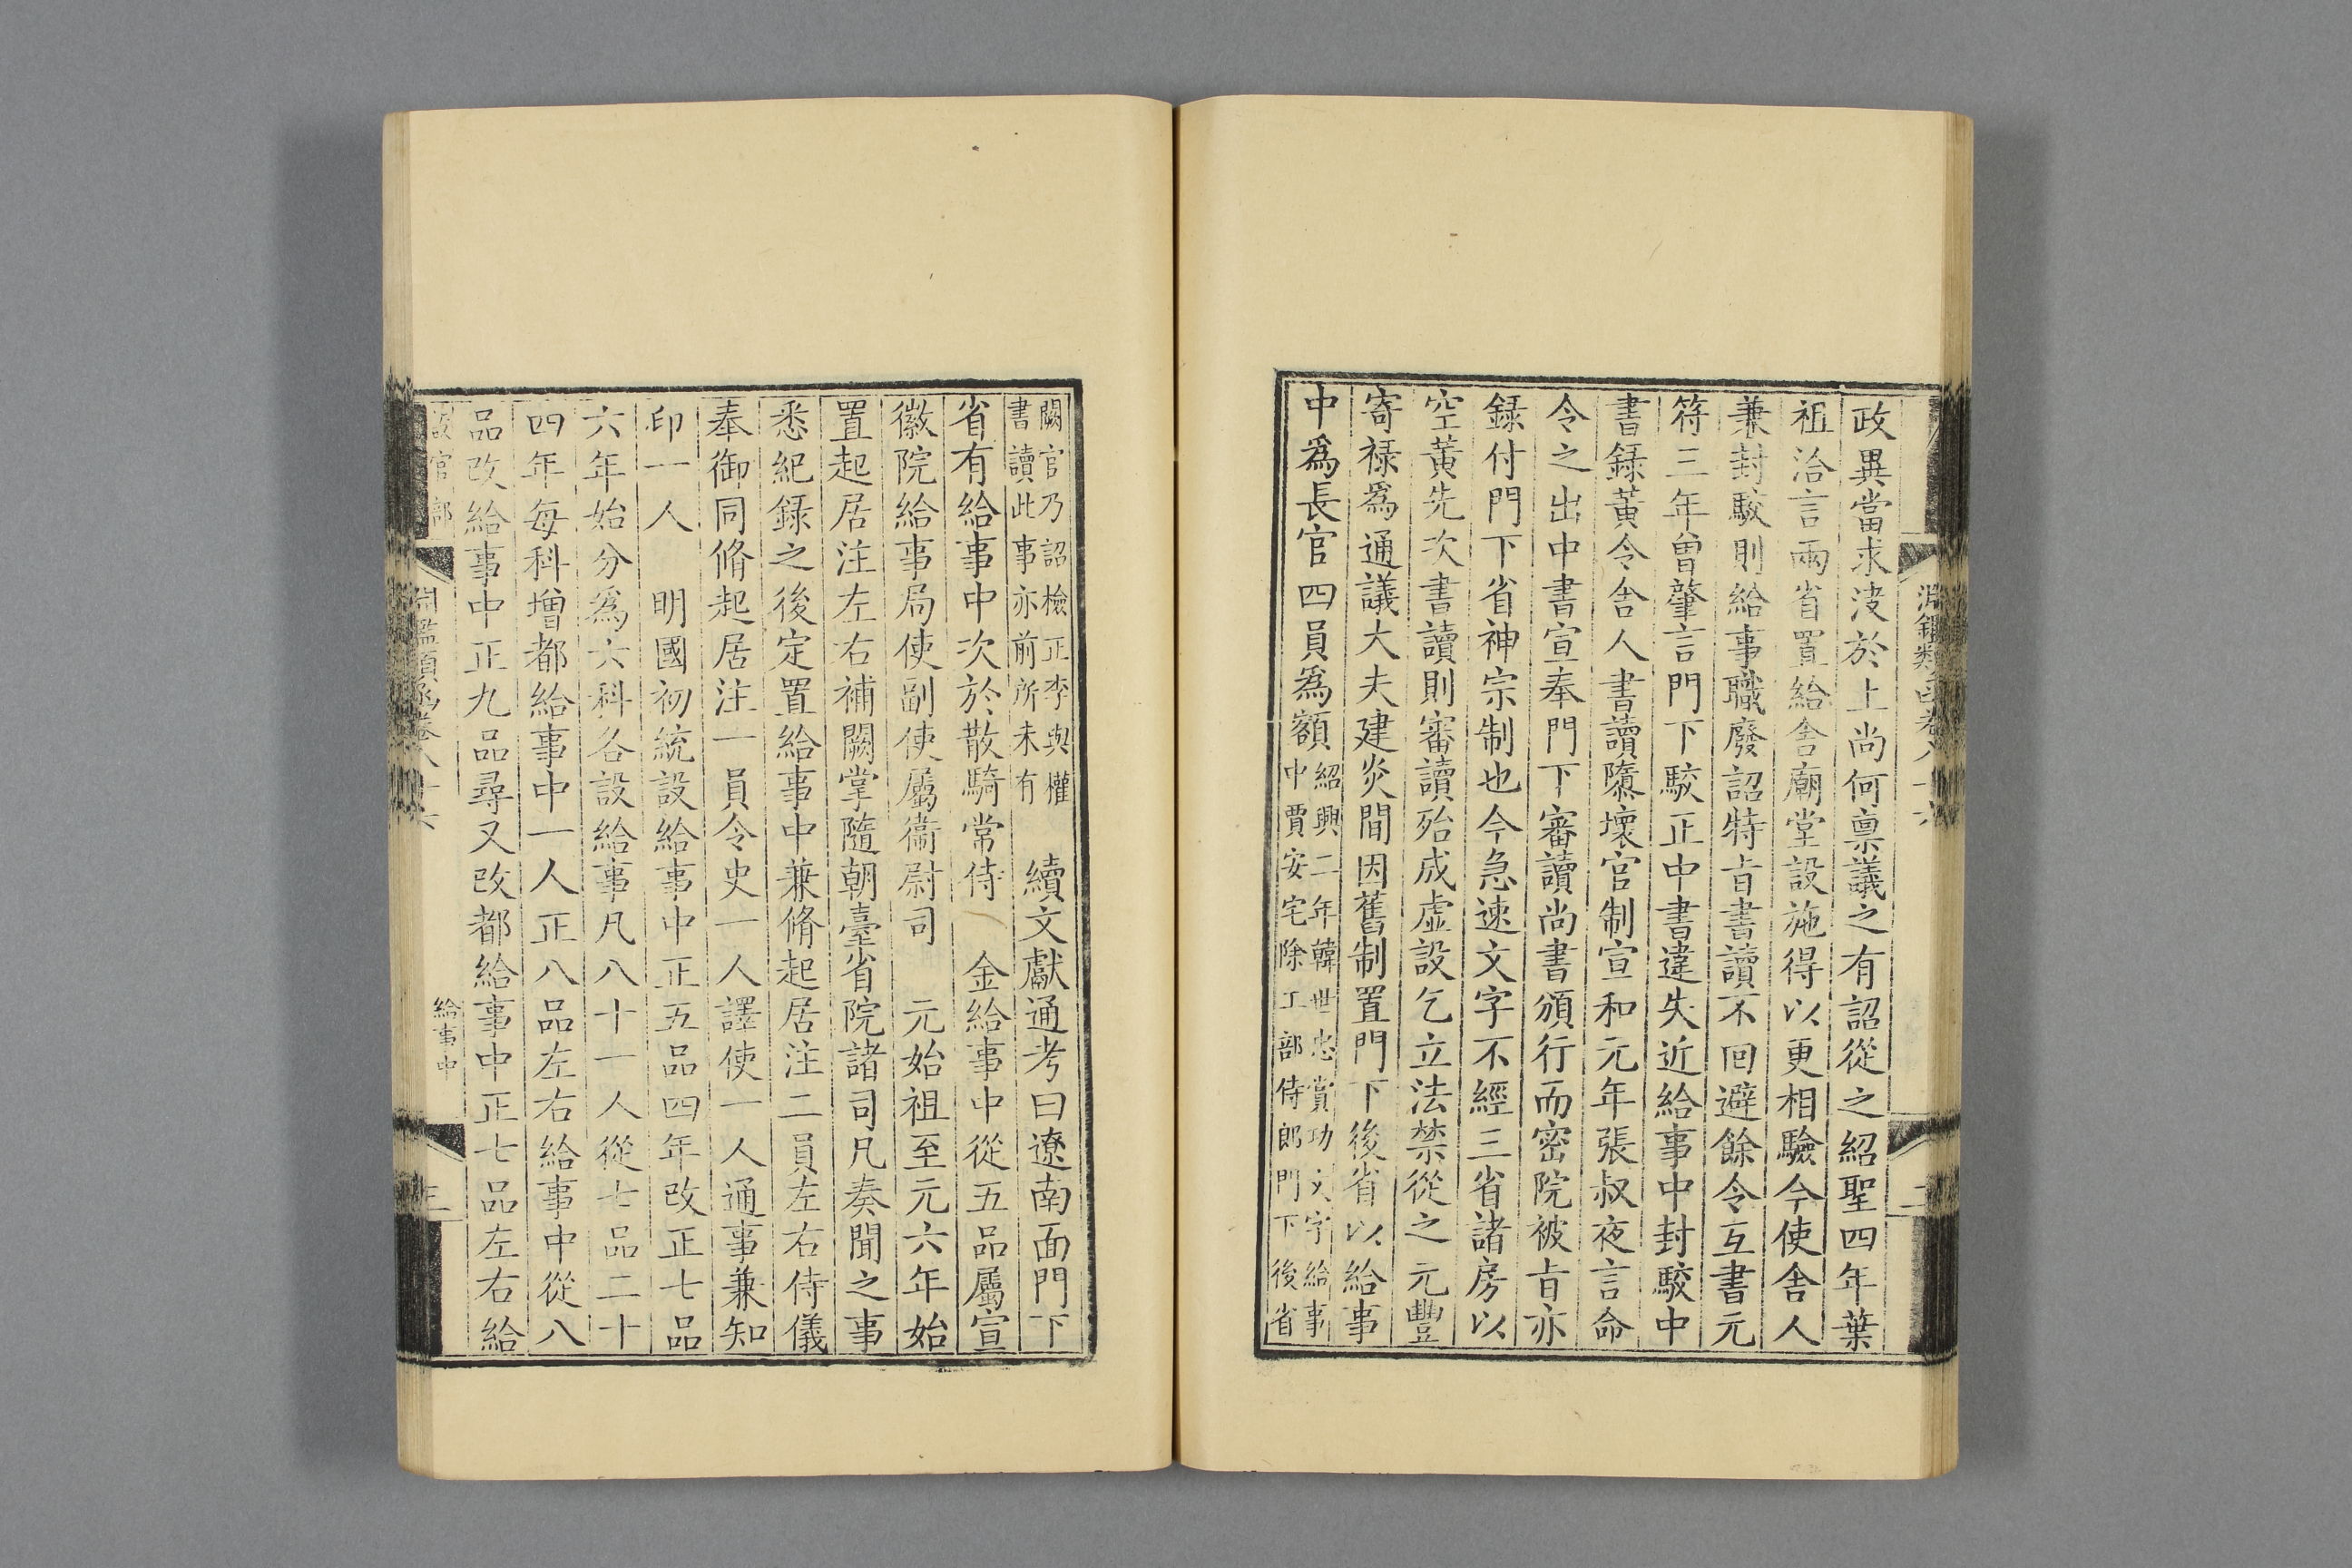 淵鑑類函卷八十六
二
政異當求決於上尚何禀議之有詔從之紹聖四年葉
祖洽言兩省置給舍廟堂設施得以更相驗今使舍人
兼封駮則給事職廢詔特旨書讀不囘避餘令互書元
符三年曾肇言門下駮正中書違失近給事中封駮中
書録黃令舍人書讀隳壞官制宣和元年張叔夜言命
令之出中書宣奉門下審讀尚書頒行而密院被旨亦
録付門下省神宗制也今急速文字不經三省諸房以
空黃先次書讀則審讀殆成虛設乞立法禁從之元豐
寄禄爲通議大夫建炎間因舊制置門下後省以給事
中爲長官四員爲額紹興二年韓世忠賞功文字給事
中賈安宅除工部侍郎門下後省
闕官乃詔檢正李與權
書讀此事亦前所未有　續文獻通考曰遼南面門下
省有給事中次於散騎常侍　金給事中從五品屬宣
徽院給事局使副使屬衞尉司　元始祖至元六年始
置起居注左右補闕掌隨朝臺省院諸司凡奏聞之事
悉紀録之後定置給事中兼脩起居注二員左右侍儀
奉御同脩起居注一員令史一人譯使一人通事兼知
印一人　明國初統設給事中正五品四年改正七品
六年始分爲六科各設給事凡八十一人從七品二十
四年每科增都給事中一人正八品左右給事中從八
品改給事中正九品尋又改都給事中正七品左右給
設官部
淵鑑類函卷八十六
給事中
三